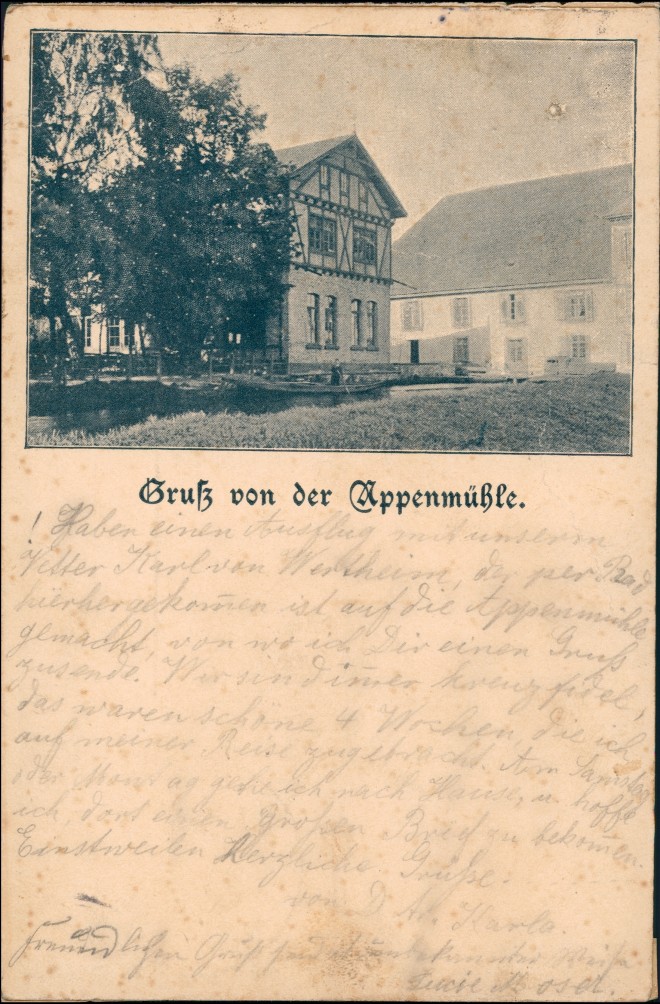 Gruß von der Appenmühle.
! Haben einen Ausflug mit unserm
Vetter Karl von Wertheim, der per Rad
hierhergekom̄en ist auf die Appenmühle
gemacht, von wo ich Dir einen Gruß
zusende. Wir sind im̄er kreuzfidel,
das waren schöne 4 Wochen, die ich
auf meiner Reise zugebracht. Am Samstag
oder Montag gehe ich nach Hause, u. hoffe
ich dort einen Großen Brief zu bekom̄en.
Einstweilen Herzliche Grüße.
von D. Karla.
Freundlichen Gruß sendet unbekannter Weise
Lucie Mosel.